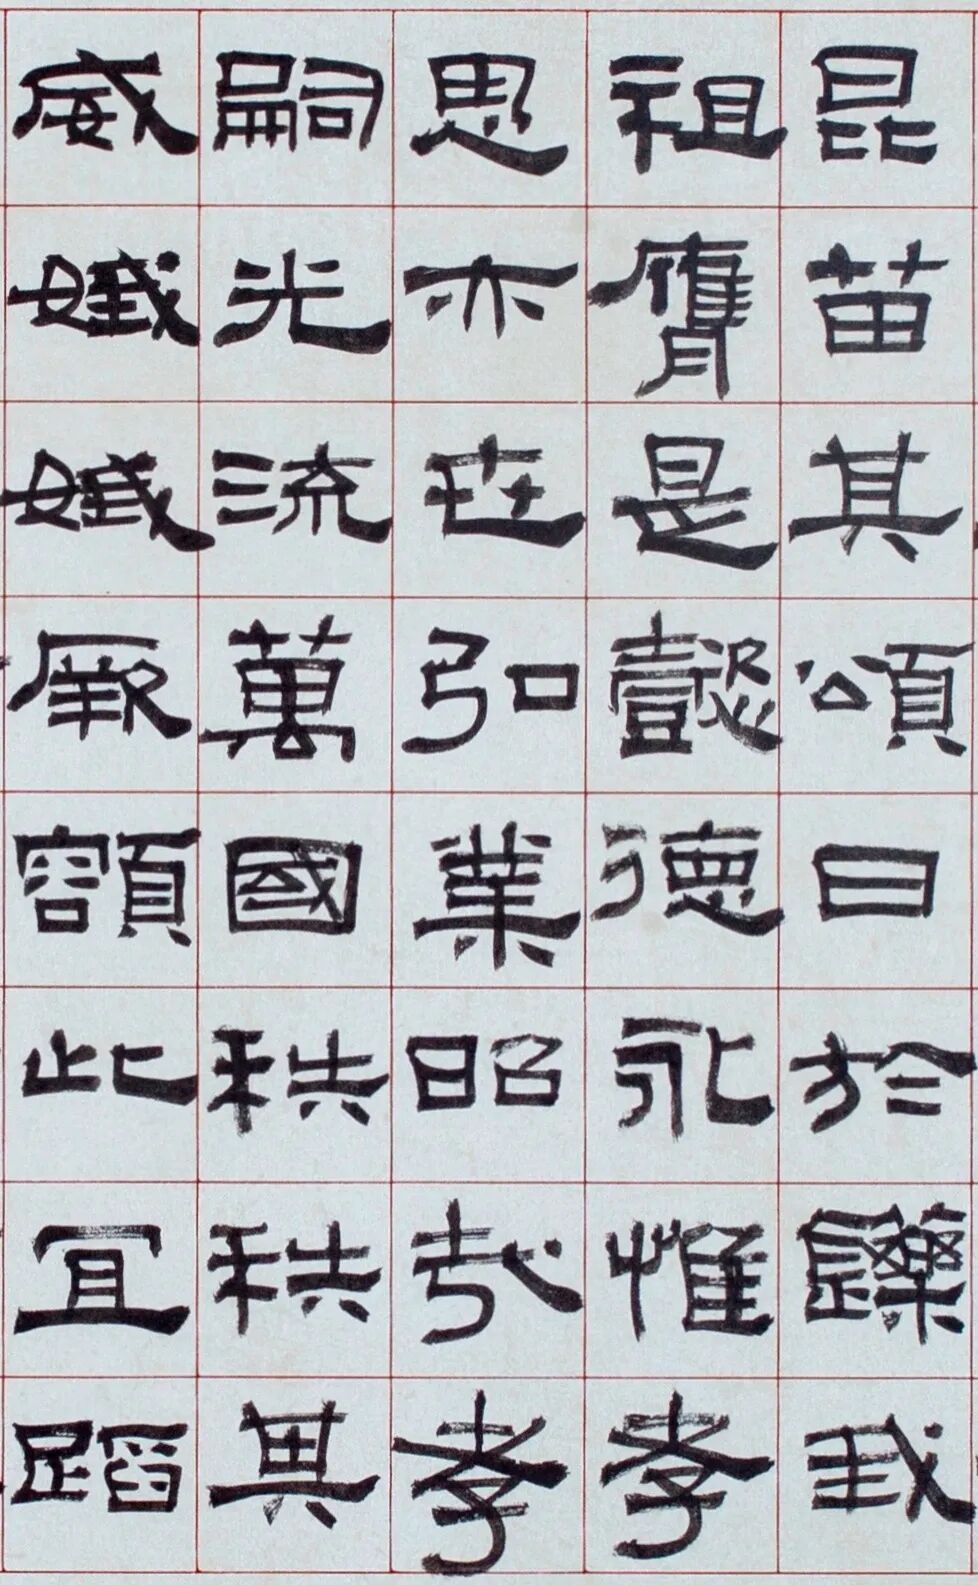 昆苗其頌曰於鑠我
祖膺是懿德永惟孝
思亦世弘業昭哉孝
嗣光流萬國秩秩其
威娥娥厥此宜蹈